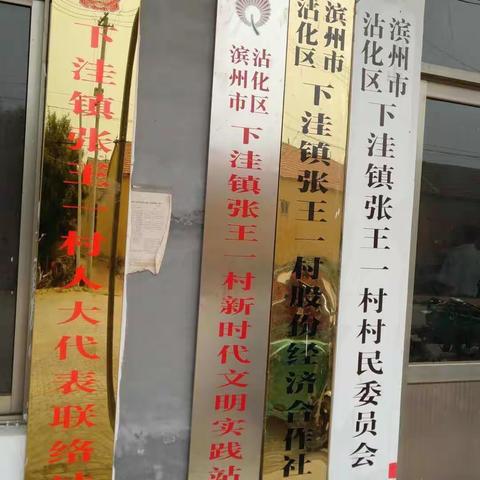 下洼镇张王一村人大代表联络
滨州市
沾化区
下洼镇张王一村新时代文明实践站
滨州市
沾化区
下洼镇张王一村股份经济合作社
滨州市
沾化区
下洼镇张王一村村民委员会